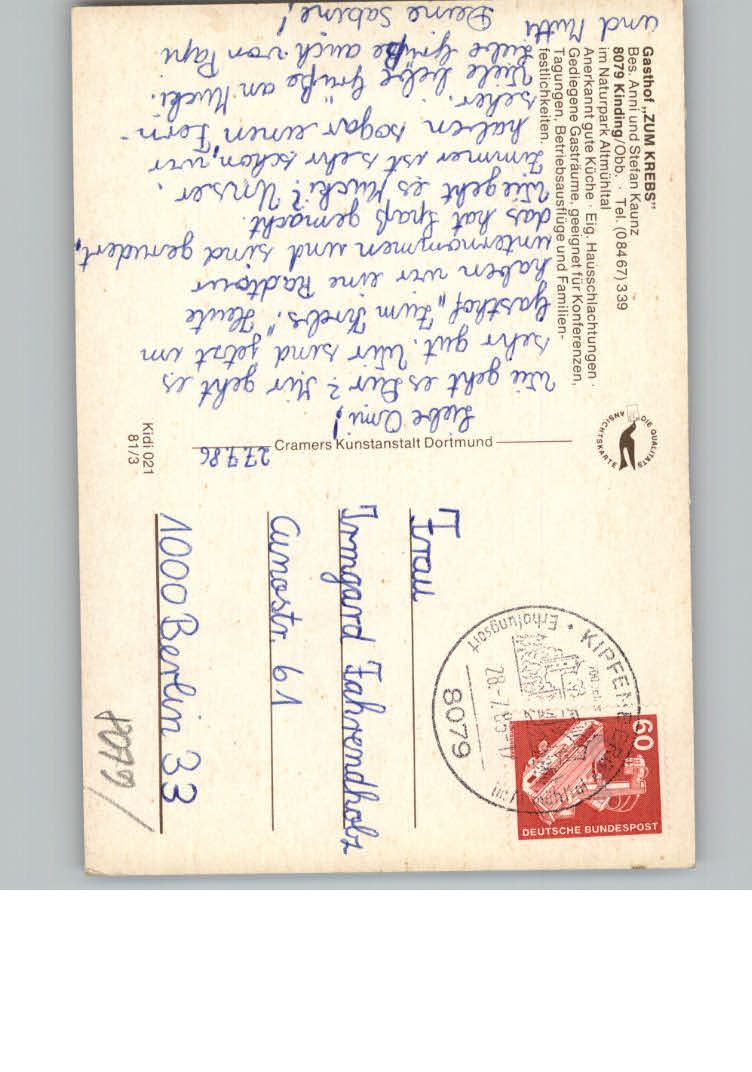 Gasthof „ZUM KREBS"
Bes. Anni und Stefan Kaunz
8079 Kinding/Obb. · Tel. (08467) 339
im Naturpark Altmühltal
Anerkannt gute Küche · Eig. Hausschlachtungen ·
Gediegene Gasträume, geeignet für Konferenzen,
Tagungen, Betriebsausflüge und Familien-
festlichkeiten.
27.7.86
Liebe Omi!
Wie geht es Dir? Mir geht es
sehr gut. Wir sind jetzt im
Gasthof „Zum Krebs." Heute
haben wir eine Radtour
unternommen und sind gerudert,
das hat Spaß gemacht.
Wie geht es Mucki? Unser
Zimmer ist sehr schön, wir
haben sogar einen Fern-
seher. Viele liebe Grüße an Mucki.
Liebe Grüße auch von Papi
und Mutti
Deine Sabine!
Cramers Kunstanstalt Dortmund
DIE QUALITÄTS
ANSICHTSKARTE
Kidi 021
81/3
KIPFENBERG
Erholungsort
8079
60
DEUTSCHE BUNDESPOST
Frau
Irmgard Fahrendholz
Cunostr. 61
1000 Berlin 33
8079